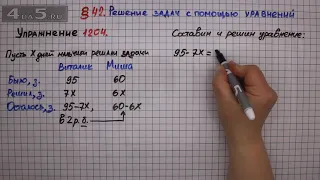 § 42. Решение задач с помощью уравнений
Упражнение 1204.
Составим и решим уравнение:
Пусть X дней мальчики решали задачи
Виталик Миша
Было, з. 95 60
Решил, з. 7X 6X
Осталось, з. 95-7X, 60-6X
в 2 р. б.
95-7X=